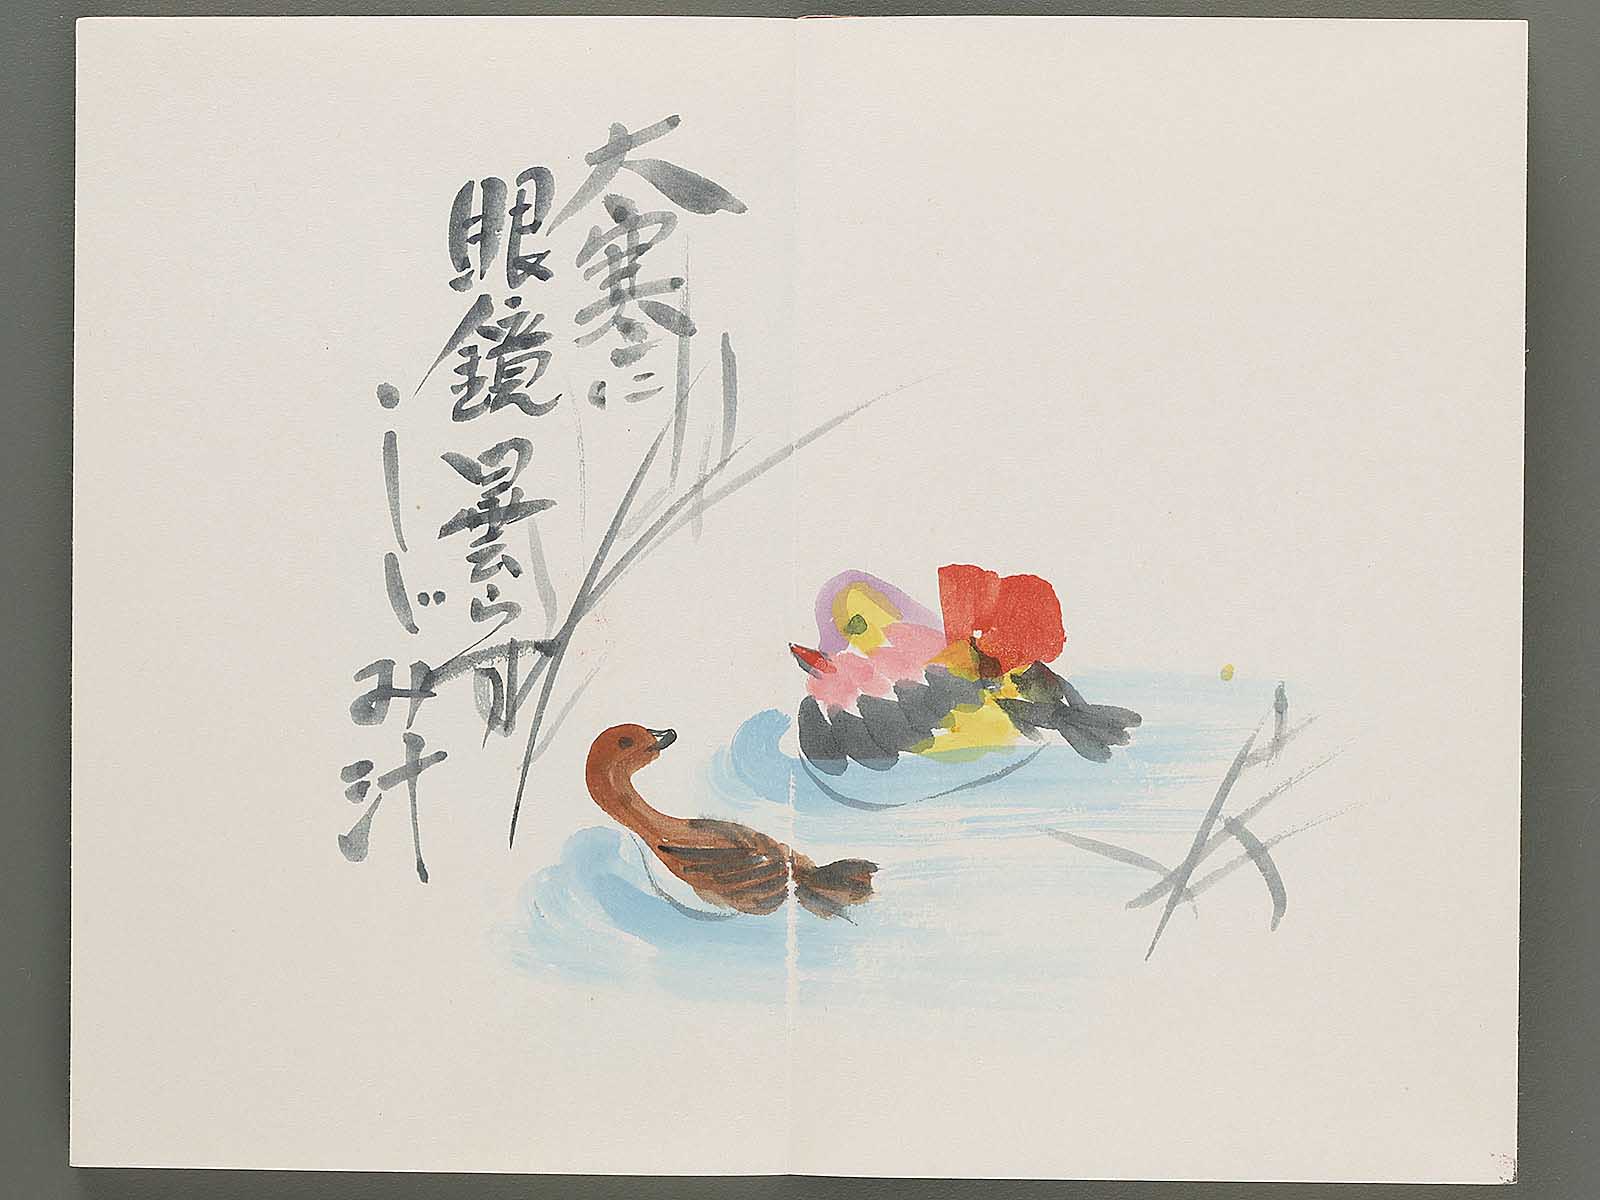 大寒に
眼鏡曇らす
しじみ汁